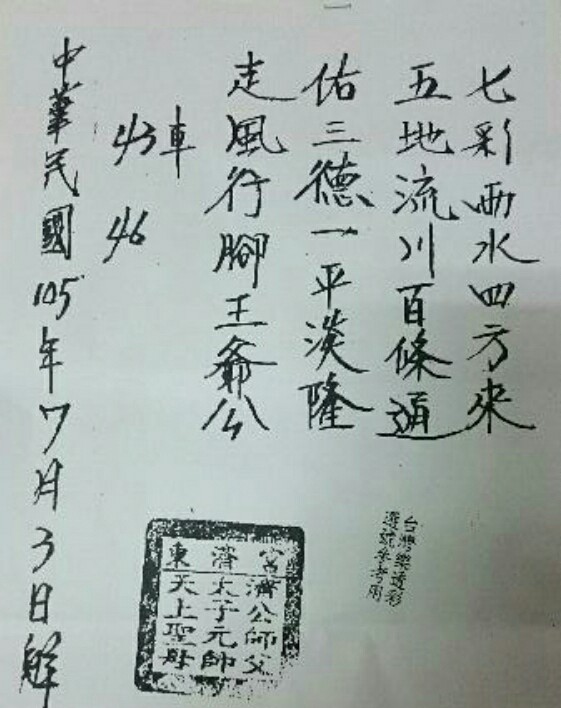 七彩雨水四方來
五地流川百條通
佑三德一平淡隆
走風行腳王爺公
43車
46
中華民國105年7月3日解
台灣樂透彩
選號參考用
東濟宮
濟公師父
太子元帥
天上聖母